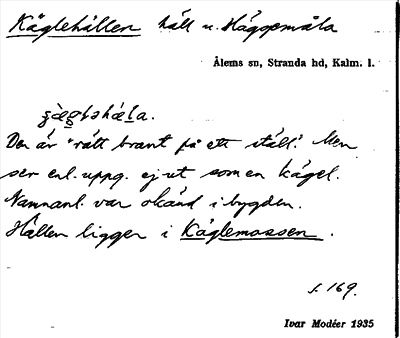 Käglehällen häll n. Häggemåla
Ålems sn, Stranda hd, Kalm. l.
Den är "rätt brant på ett ställ". Men
ser enl. uppg. ej ut som en kägel.
Namnanl. var okänd i bygden.
Hällen ligger i Käglemossen.
s. 169.
Ivar Modéer 1935